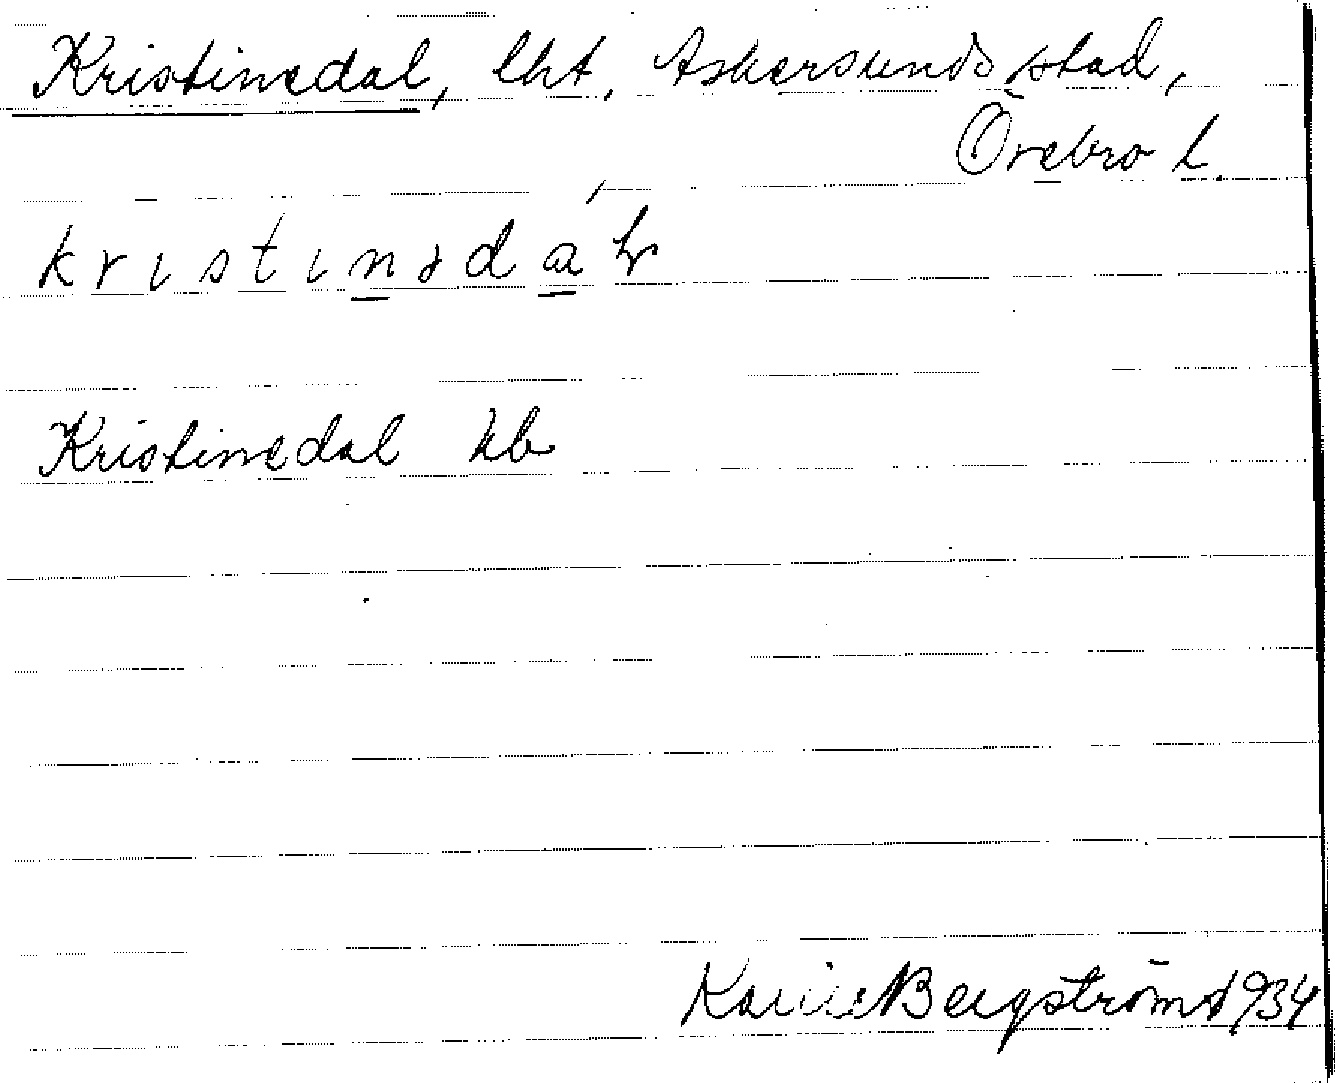 Kristinedal, lht, Askersunds stad,
Örebro l.
kristinədál
Kristinedal kb
Bergström 1934